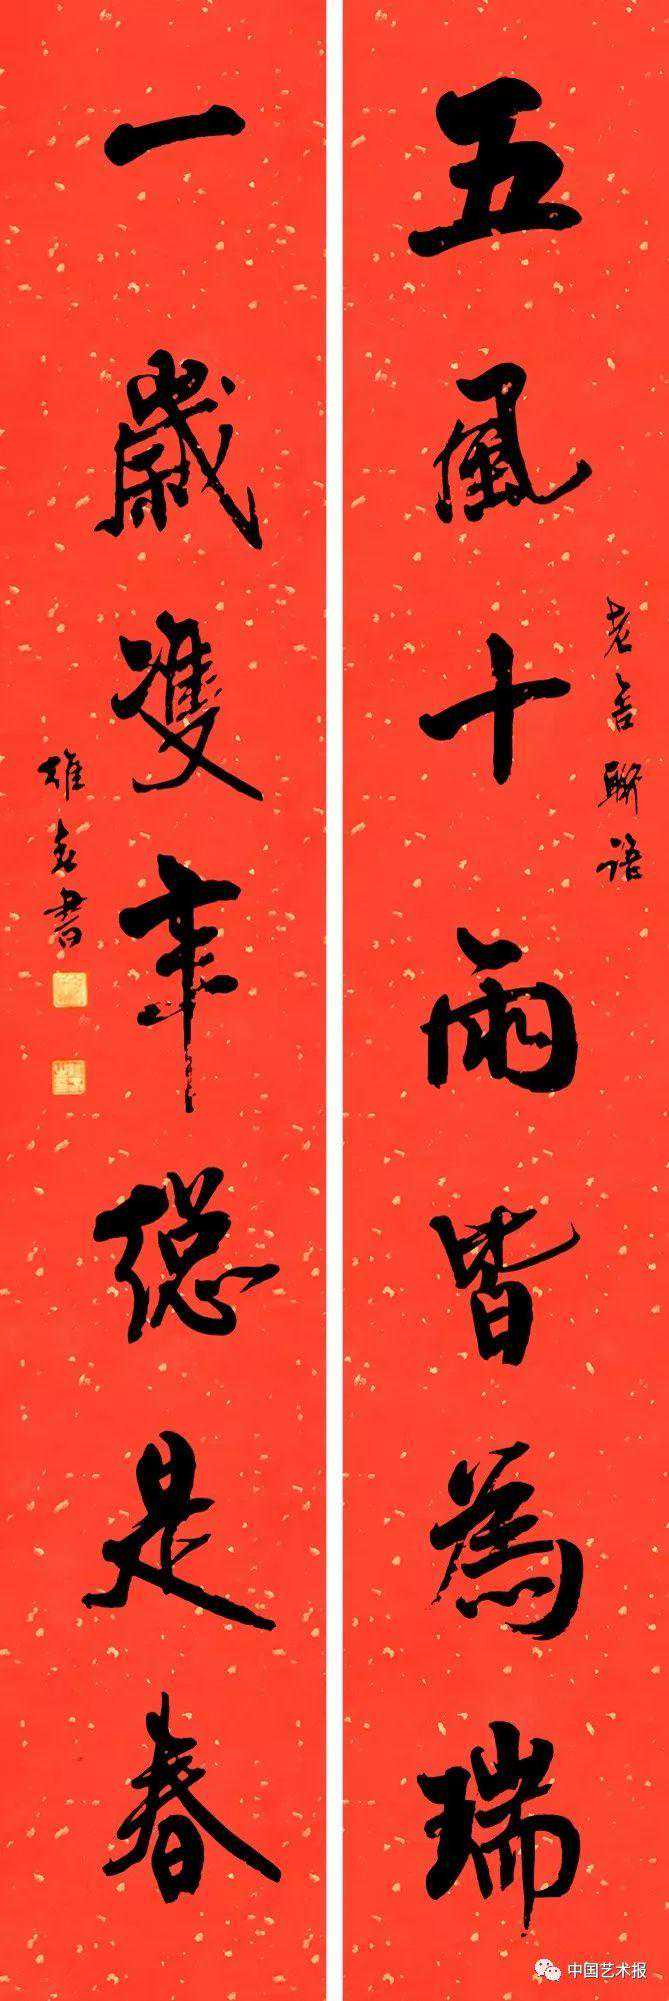 五風十雨皆為瑞
老舍聯語
一歲雙年總是春
雄春書
中国艺术报